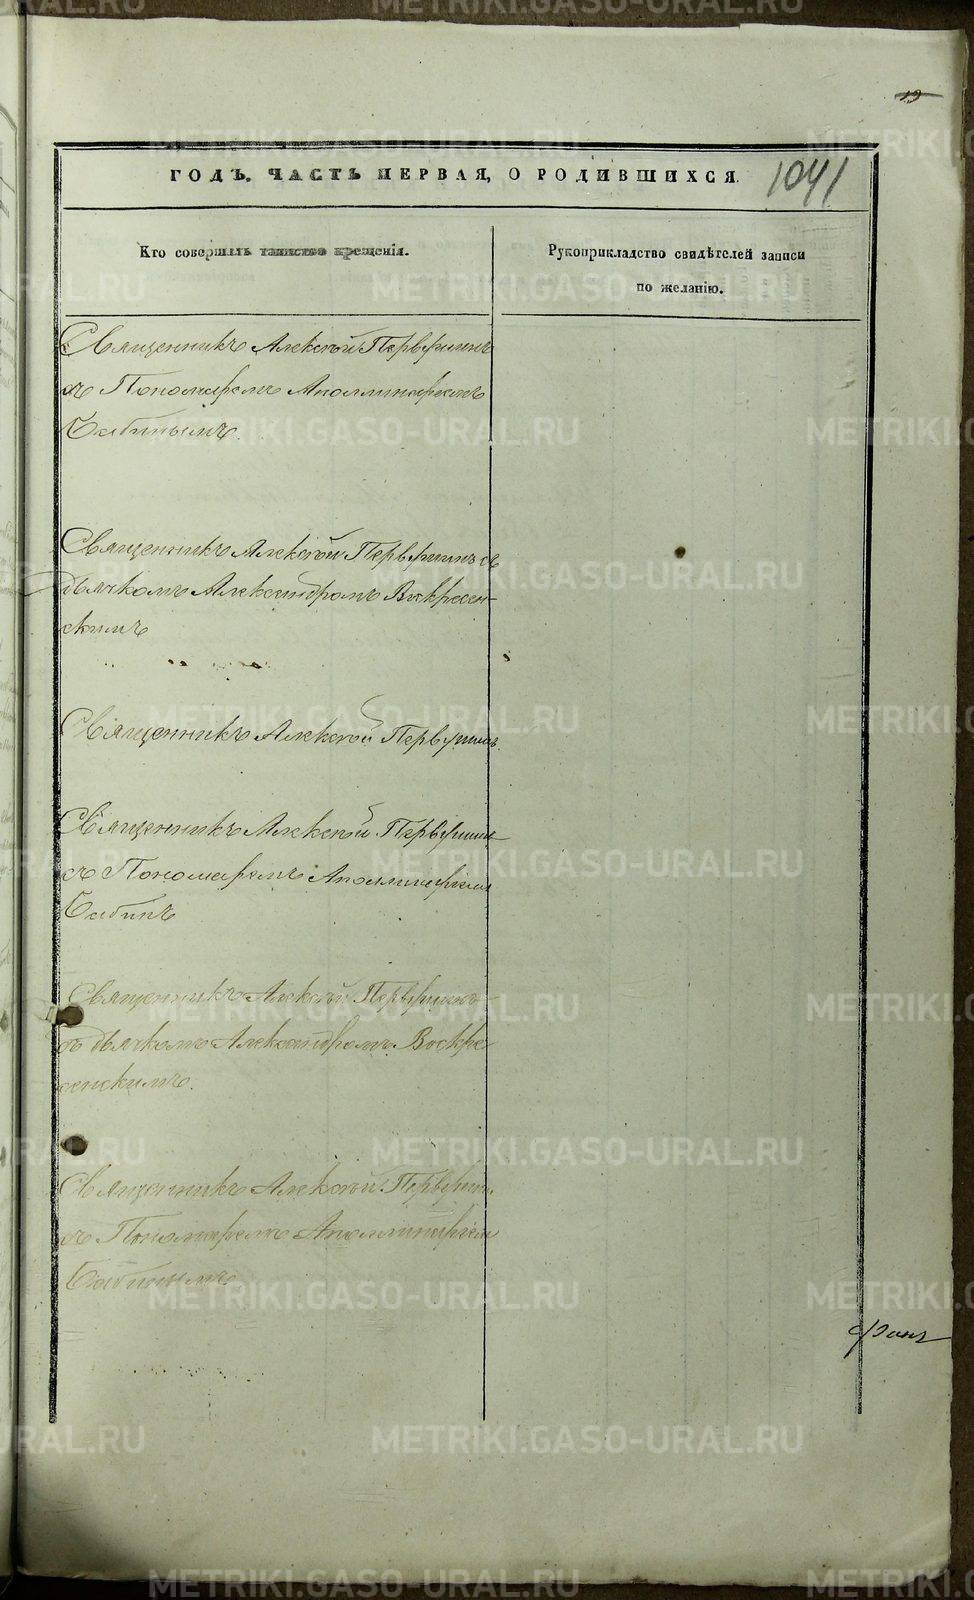 19
1041
ГОДЪ. ЧАСТЬ ПЕРВАЯ, О РОДИВШИХСЯ.
Кто совершалъ таинство крещенія.
Рукоприкладство свидѣтелей записи
по желанію.
Священникъ Алексѣй Первушинъ
съ Пономаремъ Аполлинаріемъ
Бабинымъ.
Священникъ Алексѣй Первушинъ съ
дьячкомъ Александромъ Воскресен-
скимъ
Священникъ Алексѣй Первушинъ
Священникъ Алексѣй Первушинъ
съ Пономаремъ Аполлинаріемъ
Бабинъ
Священникъ Алексѣй Первушинъ
съ дьячкомъ Александромъ Воскре
сенскимъ.
Священникъ Алексѣй Первушин.
съ Пономаремъ Аполлинаріем
Бабинымъ
METRIKI.GASO-URAL.RU